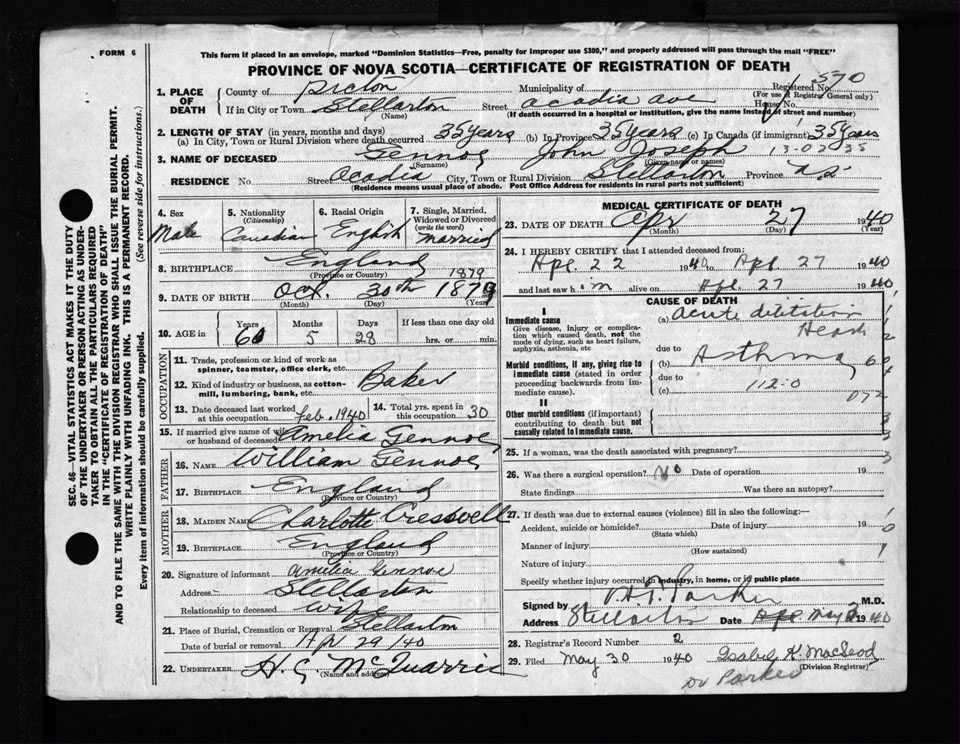 FORM 6
This form if placed in an envelope, marked "Dominion Statistics—Free, penalty for improper use $300," and properly addressed will pass through the mail "FREE"
PROVINCE OF NOVA SCOTIA—CERTIFICATE OF REGISTRATION OF DEATH
SEC. 46—VITAL STATISTICS ACT MAKES IT THE DUTY
OF THE UNDERTAKER OR PERSON ACTING AS UNDER-
TAKER TO OBTAIN ALL THE PARTICULARS REQUIRED
IN THE "CERTIFICATE OF REGISTRATION OF DEATH"
AND TO FILE THE SAME WITH THE DIVISION REGISTRAR WHO SHALL ISSUE THE BURIAL PERMIT.
WRITE PLAINLY WITH UNFADING INK. THIS IS A PERMANENT RECORD.
Every item of information should be carefully supplied. (See reverse side for instructions.)
1. PLACE OF DEATH
County of Pictou Municipality of Registered No. 570
(For use of Registrar General only)
If in City or Town Stellarton Street Acadia Ave House No.
(Name) (If death occurred in a hospital or institution, give the name instead of street and number)
2. LENGTH OF STAY (in years, months and days)
(a) In City, Town or Rural Division where death occurred 35 years (b) In Province 35 years (c) In Canada (if immigrant) 35 years
13-02 35
3. NAME OF DECEASED Gennoe John Joseph
(Surname) (Given name or names)
RESIDENCE No. Street Acadia City, Town or Rural Division Stellarton Province N.S.
(Residence means usual place of abode. Post Office Address for residents in rural parts not sufficient)
4. Sex Male
5. Nationality (Citizenship) Canadian
6. Racial Origin English
7. Single, Married, Widowed or Divorced (write the word) married
8. BIRTHPLACE England
(Province or Country) 1879
9. DATE OF BIRTH Oct. 30th 1879
(Month) (Day) (Year)
10. AGE in Years 60 Months 5 Days 28 If less than one day old hrs. or min.
OCCUPATION
11. Trade, profession or kind of work as spinner, teamster, office clerk, etc.
12. Kind of industry or business, as cotton-mill, lumbering, bank, etc. Baker
13. Date deceased last worked at this occupation Feb. 1940
14. Total yrs. spent in this occupation 30
15. If married give name of wife or husband of deceased Amelia Gennoe
FATHER
16. NAME William Gennoe
17. BIRTHPLACE England
(Province or Country)
MOTHER
18. MAIDEN NAME Charlotte Cresswell
19. BIRTHPLACE England
(Province or Country)
20. Signature of informant Amelia Gennoe
Address Stellarton
Relationship to deceased wife
21. Place of Burial, Cremation or Removal Stellarton
Date of burial or removal Apr 29/40
22. UNDERTAKER H. G McQuarrie
MEDICAL CERTIFICATE OF DEATH
23. DATE OF DEATH Apr 27 1940
(Month) (Day) (Year)
24. I HEREBY CERTIFY that I attended deceased from:
Apl. 22 1940 to Apl 27 1940
and last saw him alive on Apl. 27 1940
CAUSE OF DEATH
I
Immediate cause
Give disease, injury or complication which caused death, not the mode of dying, such as heart failure, asphyxia, asthenia, etc.
(a) Acute dilitation Heart
due to
Morbid conditions, if any, giving rise to immediate cause (stated in order proceeding backwards from immediate cause).
(b) Asthma
due to
(c) 112-0
092
II
Other morbid conditions (if important) contributing to death but not causally related to immediate cause.
25. If a woman, was the death associated with pregnancy?
26. Was there a surgical operation? No Date of operation 19
State findings Was there an autopsy?
27. If death was due to external causes (violence) fill in also the following:—
Accident, suicide or homicide? Date of injury 19
(State which)
Manner of injury
(How sustained)
Nature of injury
Specify whether injury occurred in industry, in home, or in public place
Signed by Parker M.D.
Address Stellarton Date May 2 1940
28. Registrar's Record Number 2
29. Filed May 30 1940 Isabel K. MacLeod
(Division Registrar)
Dr Parker